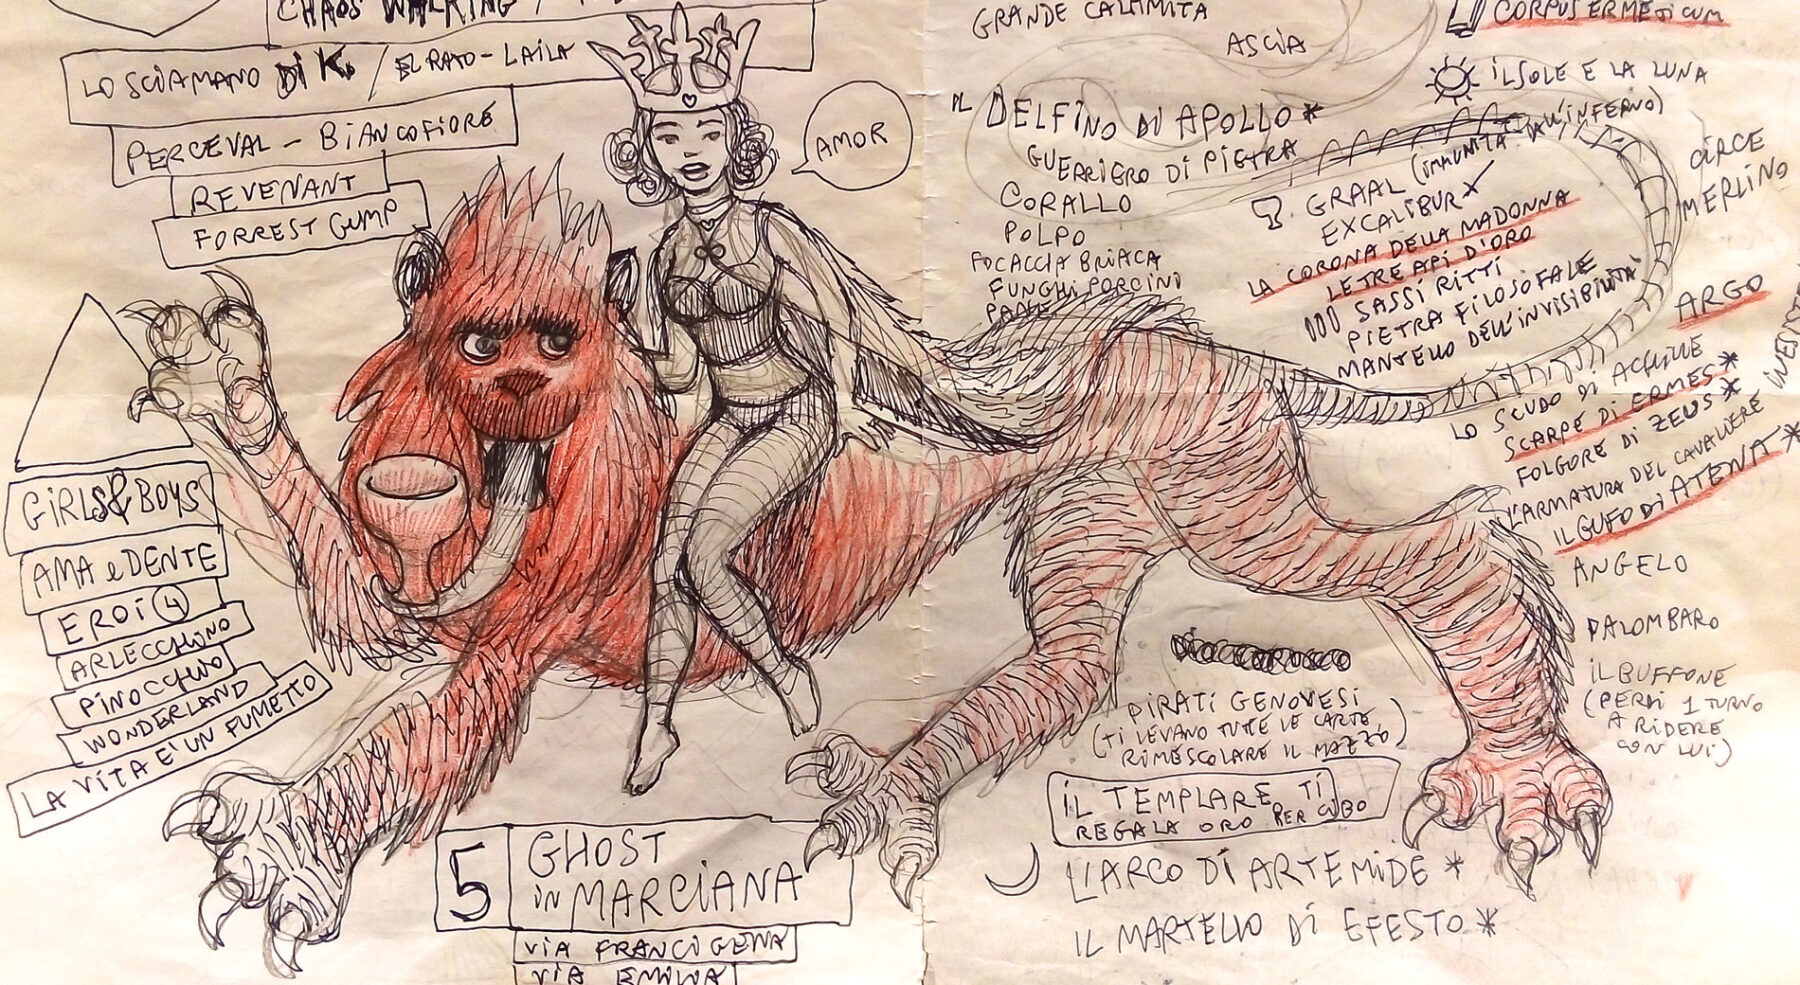 CHAOS WALKING /
LO SCIAMANO DI K. / EL RATO - LAILA
PERCEVAL - BIANCOFIORE
REVENANT
FORREST GUMP
AMOR
GIRLS & BOYS
AMA e DENTE
EROI 4
ARLECCHINO
PINOCCHIO
WONDERLAND
LA VITA E' UN FUMETTO
5
GHOST
in MARCIANA
VIA FRANCIGENA
VIA EMILIA
GRANDE CALAMITA
ASCIA
IL DELFINO DI APOLLO *
GUERRIERO DI PIETRA
CORALLO
POLPO
FOCACCIA BRIACA
FUNGHI PORCINI
PANE
CORPUS ERMETICUM
IL SOLE E LA LUNA
GRAAL (IMMUNITA DALL'INFERNO)
EXCALIBUR X
LA CORONA DELLA MADONNA
LE TRE API D'ORO
SASSI RITTI
PIETRA FILOSOFALE
MANTELLO DELL'INVISIBILITA'
CIRCE
MERLINO
ARGO
LO SCUDO DI ACHILLE
SCARPE DI ERMES *
FOLGORE DI ZEUS *
L'ARMATURA DEL CAVALIERE
IL GUFO DI ATENA *
ANGELO
PALOMBARO
IL BUFFONE
(PERDI 1 TURNO
A RIDERE
CON LUI)
PIRATI GENOVESI
(TI LEVANO TUTTE LE CARTE,
RIMESCOLARE IL MAZZO)
IL TEMPLARE TI
REGALA ORO PER CIBO
L'ARCO DI ARTEMIDE *
IL MARTELLO DI EFESTO *